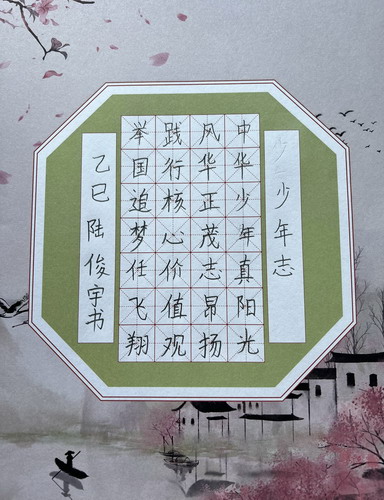 少年志
中华少年真阳光
风华正茂志昂扬
践行核心价值观
举国追梦任飞翔
乙巳 陆俊宇书